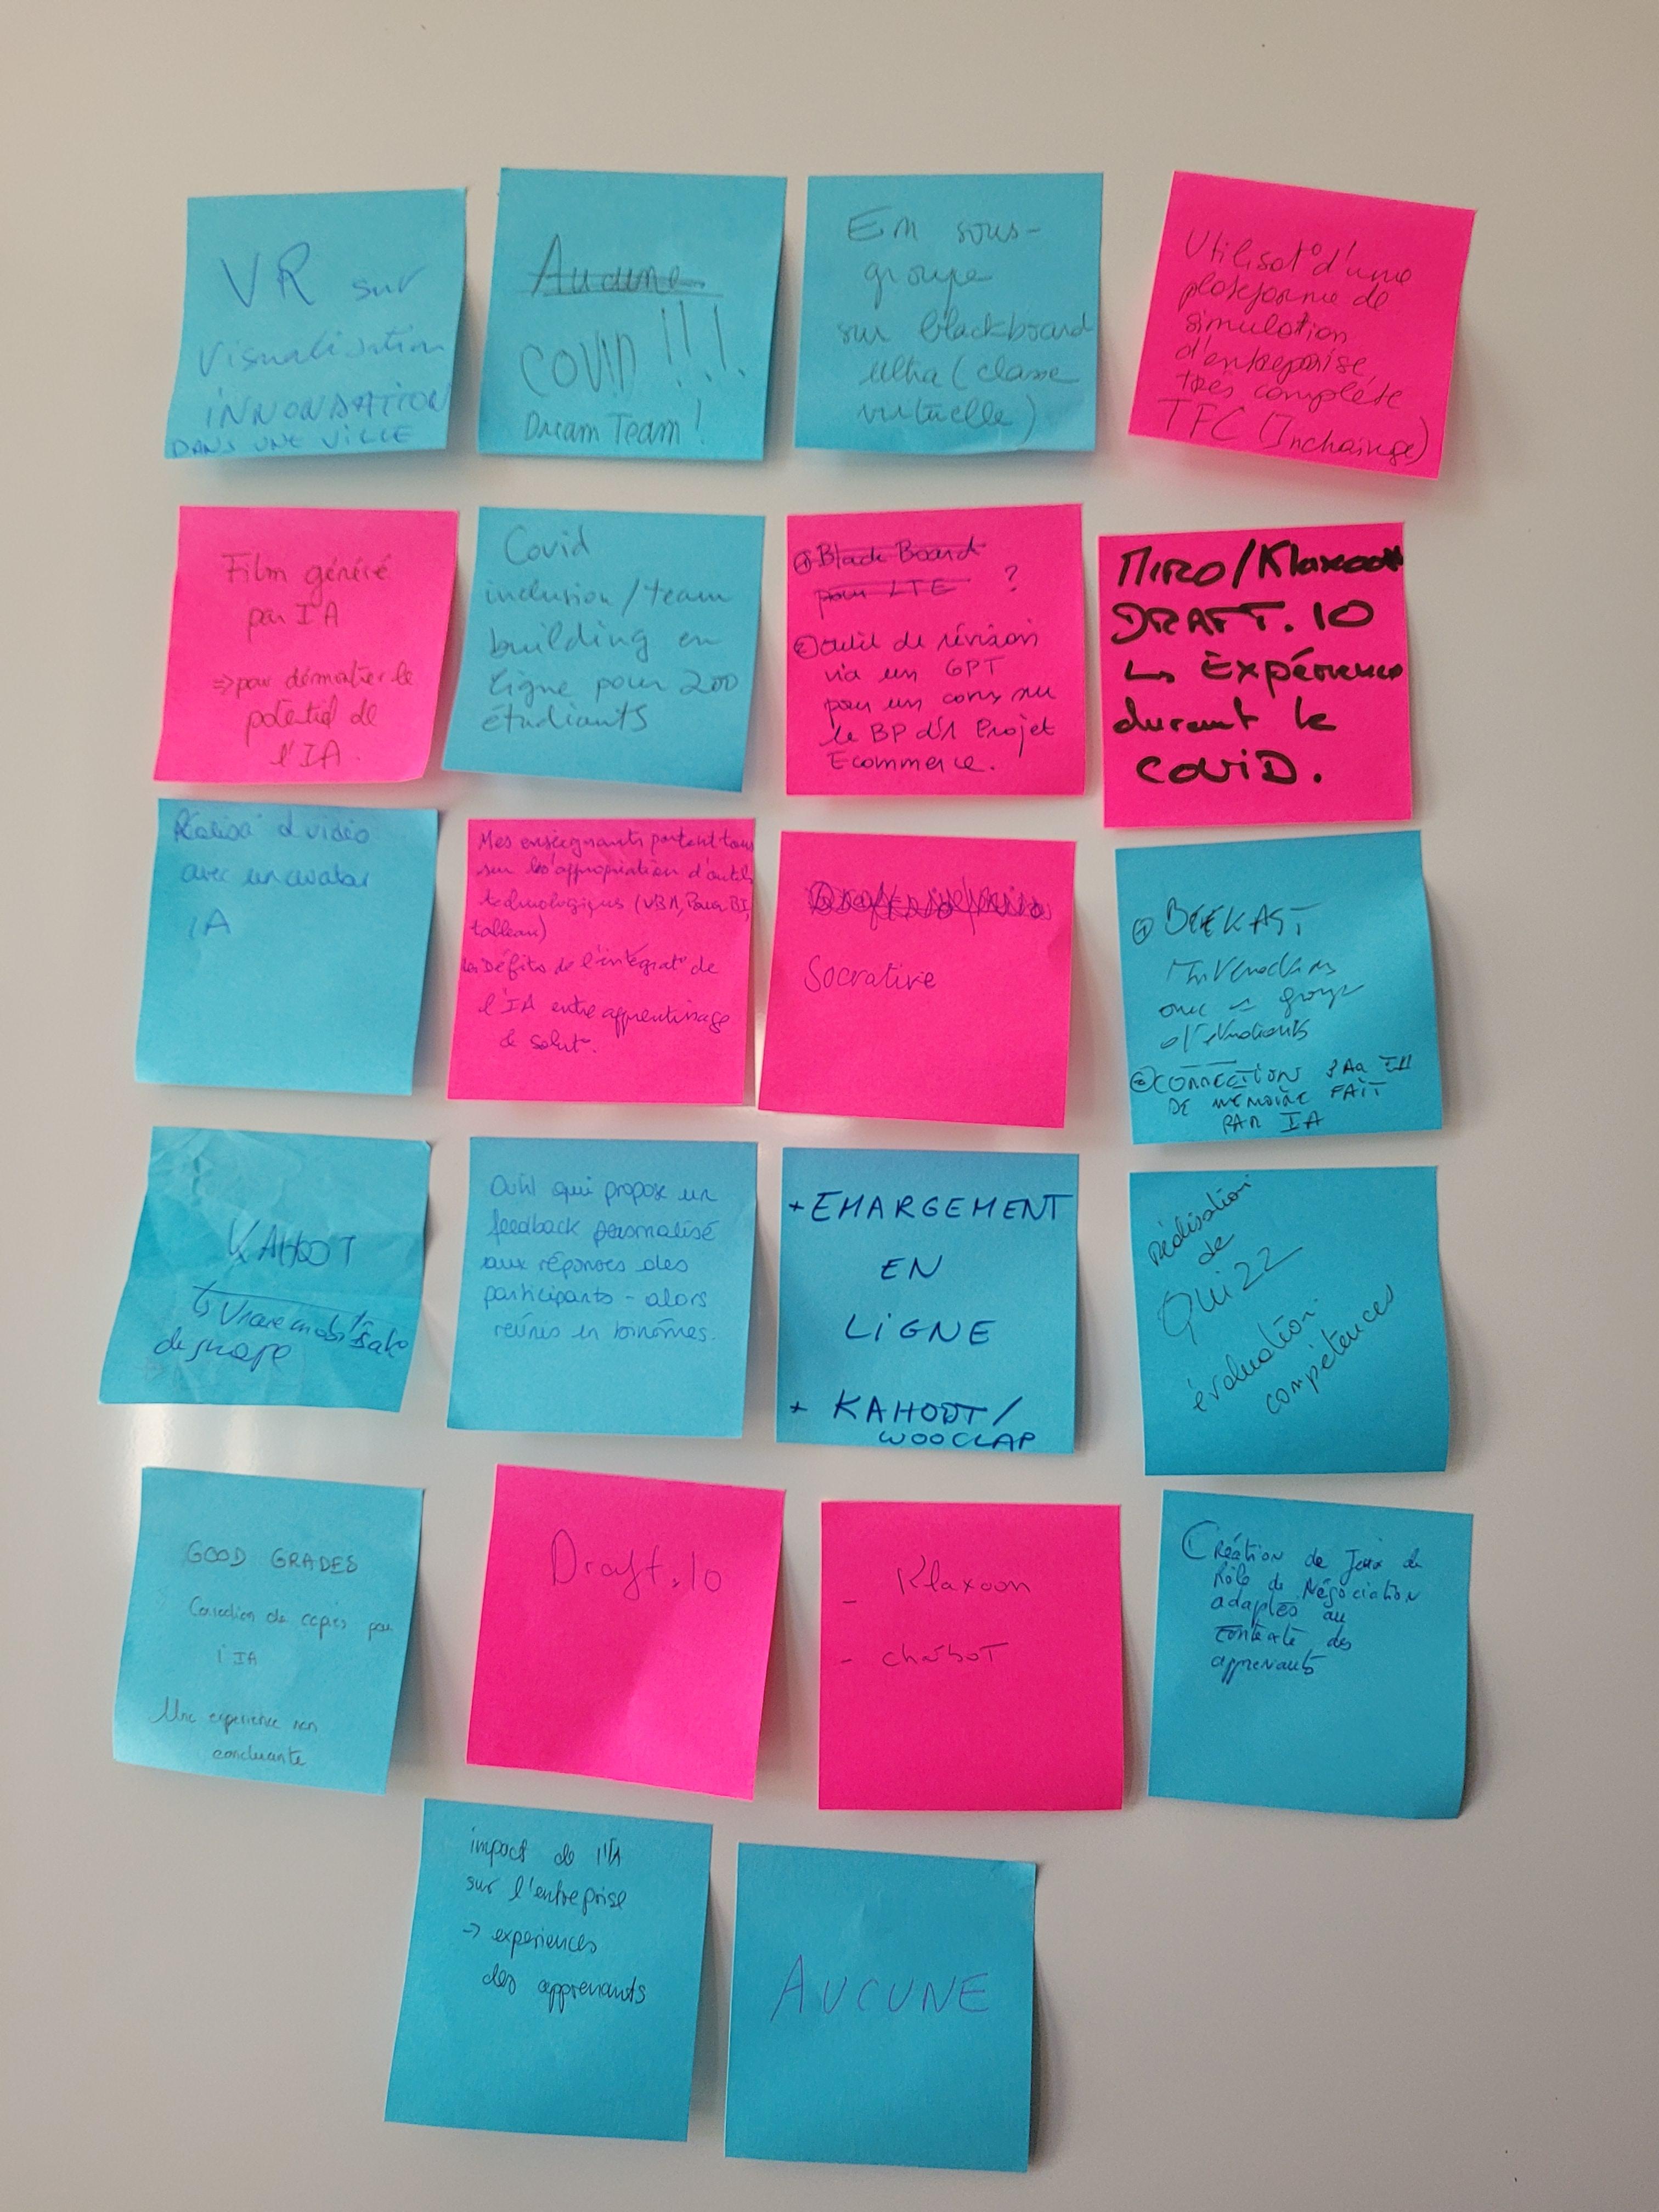 VR sur
Visualisation
INNONDATION
DANS UNE VILLE
Aucune
COVID !!!
Dream Team !
En sous-
groupe
sur blackboard
ultra (classe
virtuelle)
Utilisat° d'une
plateforme de
simulation
d'entreprise
très complète
TFC (Inchainge)
Film généré
par IA
⇒ pour démontrer le
potentiel de
l'IA.
Covid
inclusion/team
building en
ligne pour 200
étudiants
① Black Board
pour LTE ?
② outil de révision
via un GPT
pour un cours sur
le BP d'1 Projet
Ecommerce.
MIRO/Klaxoon
DRAFT.IO
↳ Expérience
durant le
COVID.
Réalisa° d vidéo
avec un avatar
IA
Mes enseignants portent tous
sur l'appropriation d'outils
technologiques (VBA, Power BI,
tableau)
Les Défits de l'intégrat° de
l'IA entre apprentissage
& solut°.
Socrative
① BEEKAST
avec = groupe
d'étudiants
② CORRECTIONS
DE MEMOIRE FAIT
PAR IA
KAHOOT
↳ Vraie mobilisato
du groupe
Outil qui propose un
feedback personalisé
aux réponses des
participants - alors
réunis en binômes.
+ EMARGEMENT
EN
LIGNE
+ KAHOOT/
WOOCLAP
Réalisation
de
Quizz
évaluation
compétences
GOOD GRADES
Correction de copies par
l IA
Une experience non
concluante
Draft.io
- Klaxoon
- chatbot
Création de Jeux de
Rôle de Négociation
adaptés au
contexte des
apprenants
impact de l'IA
sur l'entreprise
→ experiences
des apprenants
AUCUNE